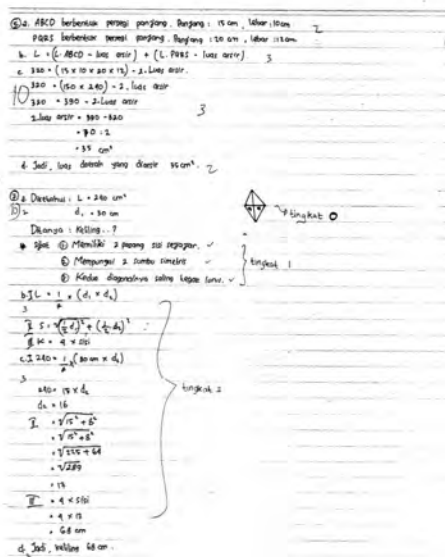 ⑤ a. ABCD berbentuk persegi panjang. Panjang : 15 cm, lebar : 10 cm 2
PQRS berbentuk persegi panjang. Panjang : 20 cm, lebar : 12 cm
b. L = (L. ABCD - luas arsir) + (L. PQRS - luas arsir) 3
c. 320 = (15 x 10 x 20 x 12) - 2. Luas arsir
10 320 = (150 x 240) - 2. luas arsir
320 = 390 - 2. Luas arsir 3
2. luas arsir = 390 - 320
= 70 : 2
= 35 cm²
d. Jadi, luas daerah yang diarsir 35 cm². 2
a. Diketahui : L = 240 cm²
d₁ = 30 cm tingkat 0
Ditanya : Keliling..?
Sifat ① Memiliki 2 pasang sisi sejajar. ✓
② Mempunyai 2 sumbu simetris ✓ tingkat 1
③ Kedua diagonalnya saling tegak lurus. ✓
b. I L = 1/2 x (d₁ x d₂)
3
II S = √(1/2 d₁)² + (1/2 d₂)²
III K = 4 x sisi
c. I 240 = 1/2 x (30 cm x d₂)
3
240 = 15 x d₂ tingkat 2
d₂ = 16
II = √15² + 8²
= √15² + 8²
= √225 + 64
= √289
= 17
III = 4 x sisi
= 4 x 17
= 68 cm
d. Jadi, keliling 68 cm.